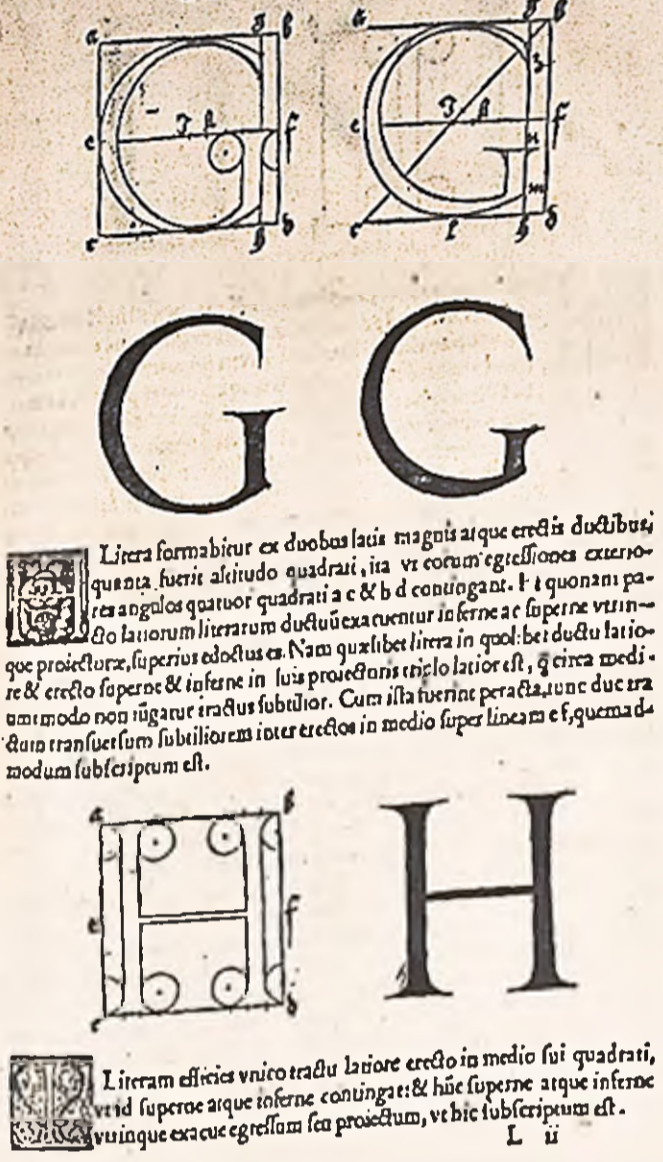 a g b a g b
z
e i k f e i k f
n
m
c h d c l h d
G G
H Litera formabitur ex duobus latis magnis atque erectis ductibus,
quanta fuerit altitudo quadrati, ita vt eorum egressiones exterio-
res angulos quatuor quadrati a c & b d contingant. Et quonam pa-
cto latiorum literarum ductuū exacuentur inferne ac superne vtrin-
que proiecturæ, superius edoctus es. Nam quælibet litera in quolibet ductu latio-
re & erecto superne & inferne in suis proiecturis triplo latior est, q̃ circa medi-
um: modo non iūgatur tractus subtilior. Cum ista fuerint peracta, tunc duc tra
ctum transuersum subtiliorem inter erectos in medio super lineam e f, quemad-
modum subscriptum est.
a b
e f
c d
H
I Literam efficies vnico tractu latiore erecto in medio sui quadrati,
vt id superne atque inferne contingat: & hūc superne atque inferne
vtrinque exacue egressum seu proiectum, vt hic subscriptum est.
L ii